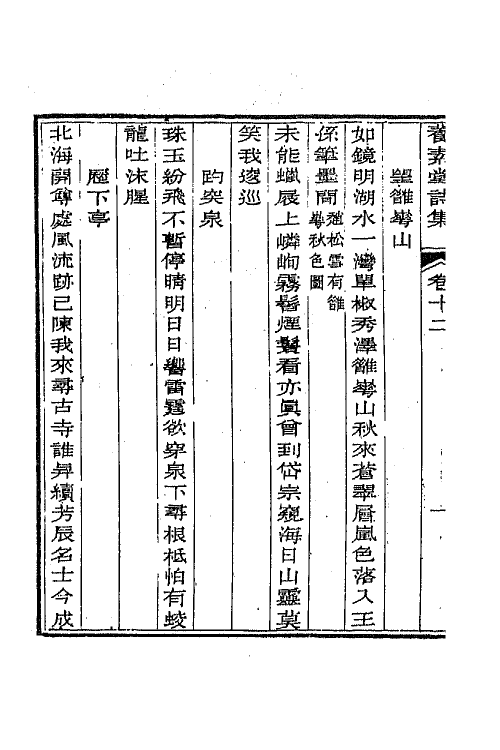 養素堂詩集 卷十二 一
望雒華山
如鏡明湖水一灣單椒秀澤雒華山秋來蒼翠層嵐色落入王
孫筆墨間 趙松雪有雒華秋色圖
未能蠟屐上嶙峋霧鬢煙鬟看亦眞曾到岱宗窺海日山靈莫
笑我逡巡
趵突泉
珠玉紛飛不暫停晴明日日響雷霆欲穿泉下尋根柢怕有蛟
龍吐沫腥
歷下亭
北海開尊處風流跡已陳我來尋古寺誰昇續芳辰名士今成